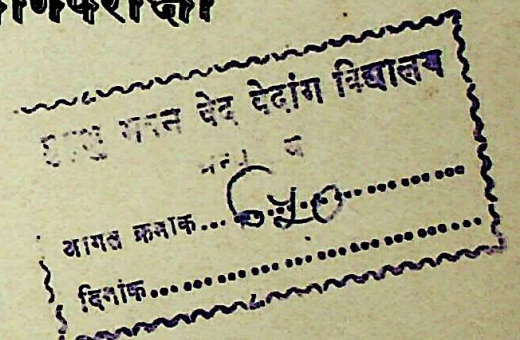 भवन वेद वेदांग विद्यालय
आगत क्रमांक...७५०..............
दिनांक..............................